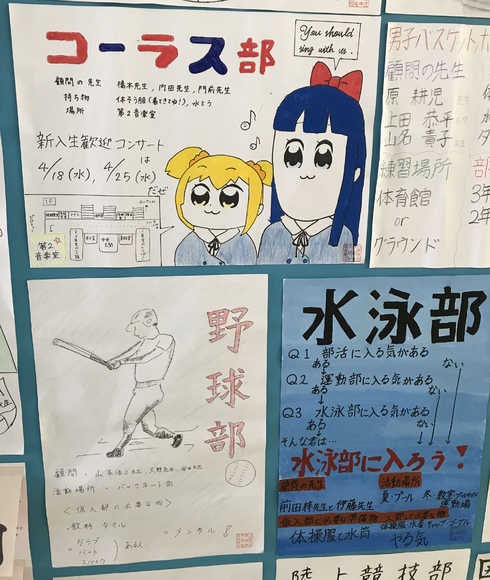 コーラス部
You should
sing with us.
顧問の先生 橋本先生, 内田先生, 門前先生
持ち物 体そう服(着てきてね!), 水とう
場所 第2音楽室
新入生歓迎コンサート
は
4/18(水), 4/25(水)
だぜ
1F
第2
音楽室
男子バスケット
顧問の先生
原 耕児 先生
上田 恭平 先生
山名 貴子 先生
練習場所
体育館
or
グラウンド
部
3年
2年
野球部
活動場所・バックネット前
<仮入部に必要な物>
飲料 タオル
グラブ
バット
スパイク
ある人
メンタル!
水泳部
Q1 部活に入る気がある
ある ない
Q2 運動部に入る気がある
ある
Q3 水泳部に入る気がある
ある
そんな君は…
水泳部に入ろう!
顧問の先生
活動場所
前田梓先生と伊藤先生
夏:プール 冬:教室
運動場
体操服と水筒
体操服・水着 キャップ ゴーグル
やる気
陸上競技部